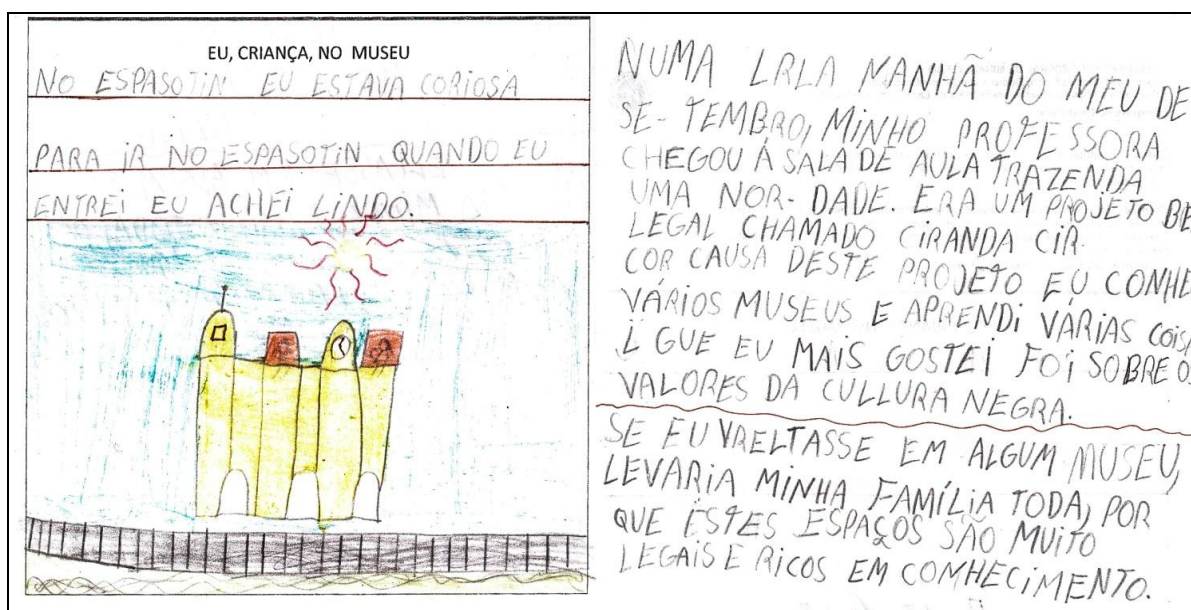 EU, CRIANÇA, NO MUSEU
NO ESPASOTIN EU ESTAVA CORIOSA
PARA IR NO ESPASOTIN QUANDO EU
ENTREI EU ACHEI LINDO.
NUMA LRLA MANHÃ DO MEU DE
SE- TEMBRO, MINHO PROFESSORA
CHEGOU À SALA DE AULA TRAZENDA
UMA NOR- DADE. ERA UM PROJETO BE
LEGAL CHAMADO CIRANDA CIR
COR CAUSA DESTE PROJETO EU CONHE
VÁRIOS MUSEUS E APRENDI VÁRIAS COIS
L GUE EU MAIS GOSTEI FOI SOBRE O
VALORES DA CULLURA NEGRA.
SE EU VRELTASSE EM ALGUM MUSEU,
LEVARIA MINHA FAMÍLIA TODA, POR
QUE ESTES ESPAÇOS SÃO MUITO
LEGAIS E RICOS EM COMHECIMENTO.